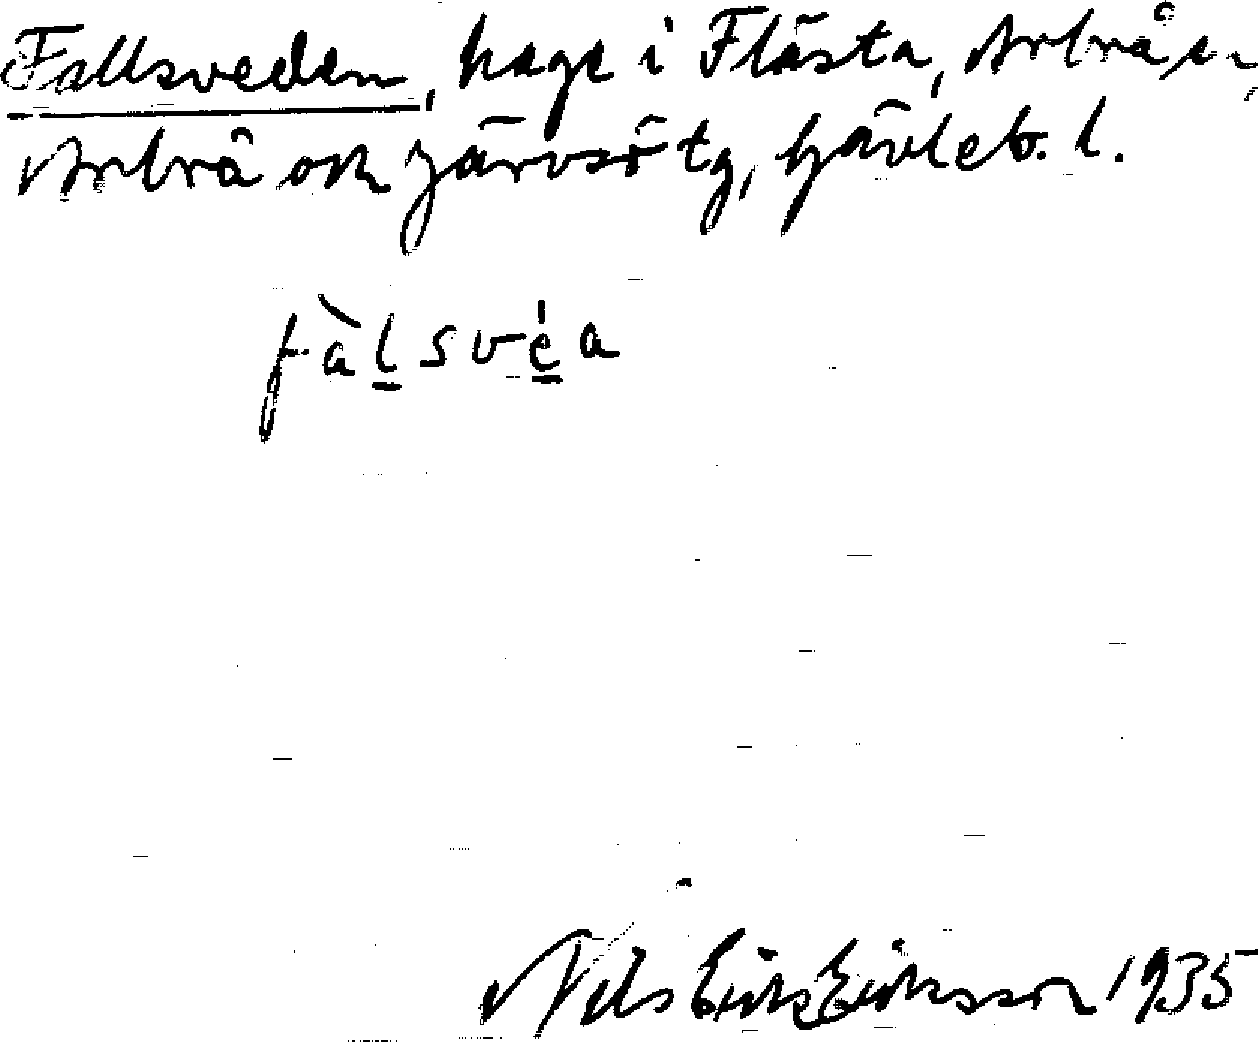 Fallsveden, hage i Flästa, Arbrå sn,
Arbrå och Järvsö tg, Gävleb. l.
fàlsvéa
Nils Eriks Eriksson 1935